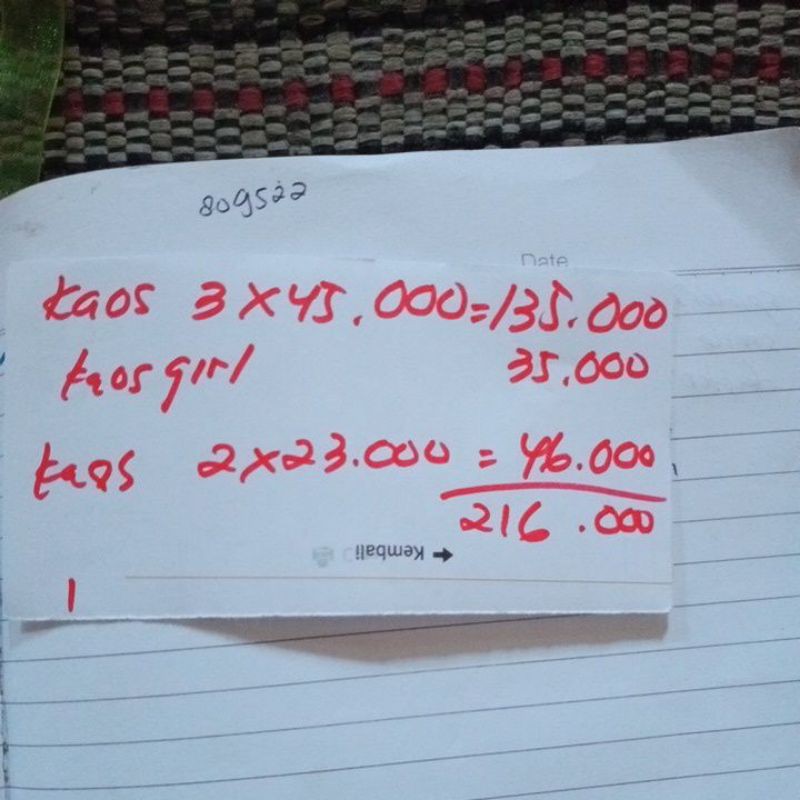 809522
Date
kaos 3 x 45.000=135.000
kaos girl 35.000
kaos 2 x 23.000 = 46.000
216.000
← Kembali
1